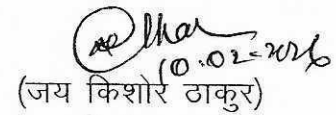 10.02-2026
(जय किशोर ठाकुर)